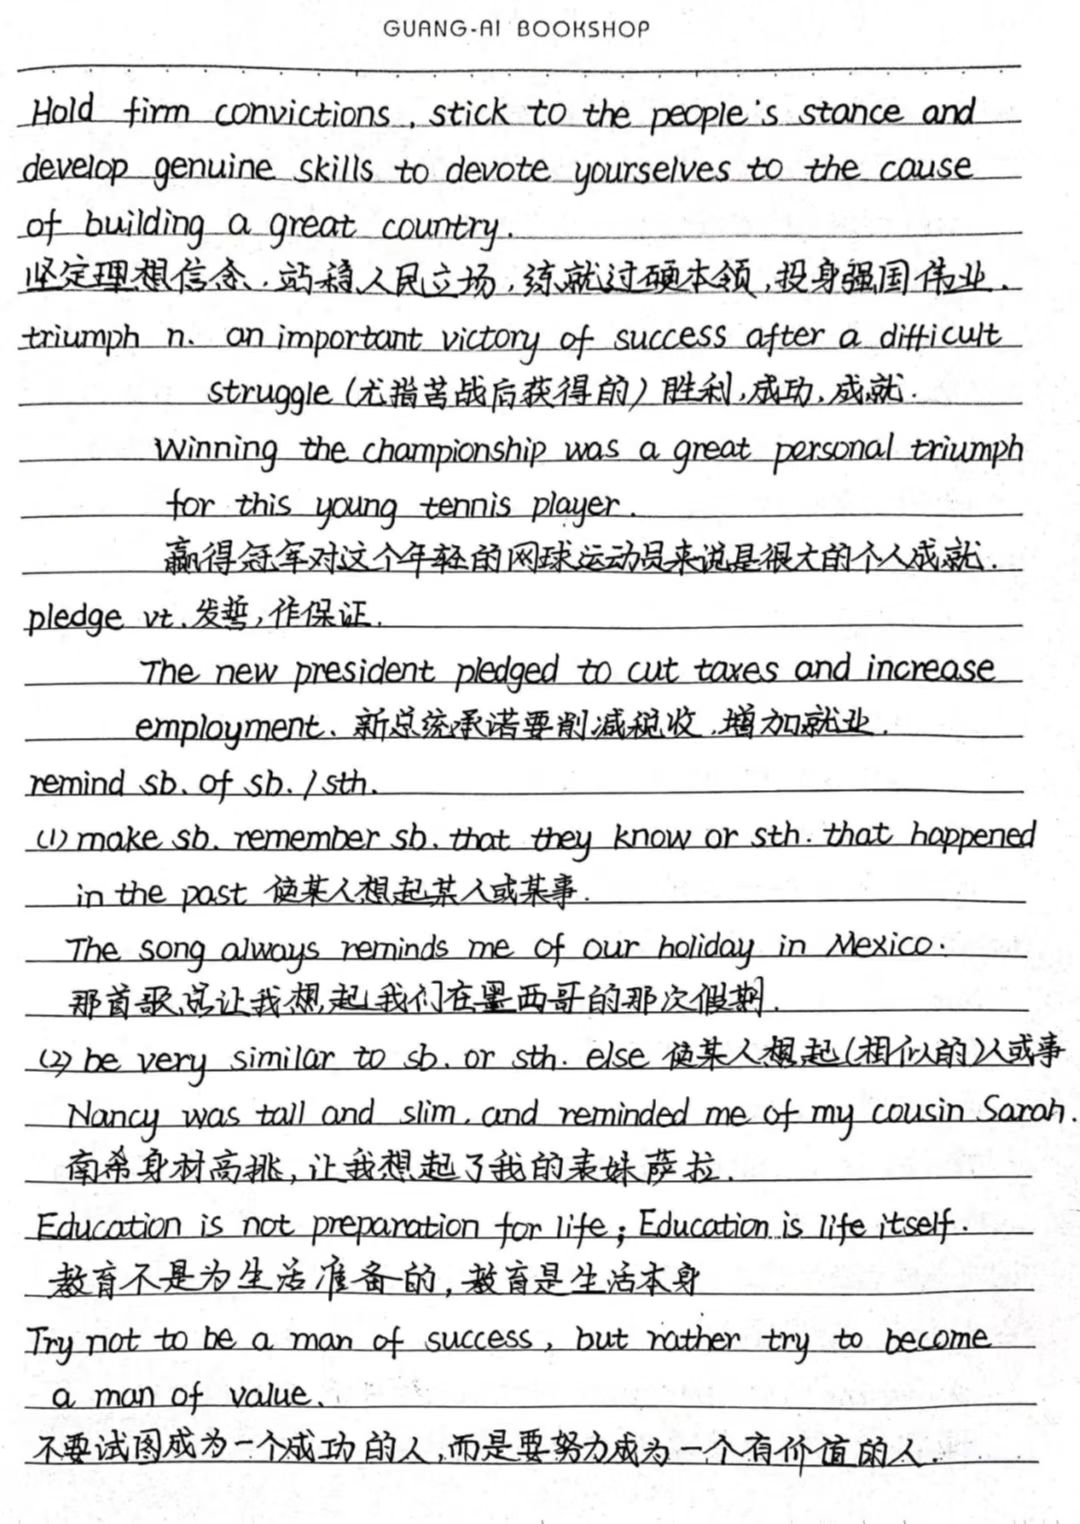 GUANG-AI BOOKSHOP
Hold firm convictions, stick to the people's stance and
develop genuine skills to devote yourselves to the cause
of building a great country.
坚定理想信念,站稳人民立场,练就过硬本领,投身强国伟业.
triumph n. an important victory of success after a difficult
struggle (尤指苦战后获得的) 胜利,成功,成就.
Winning the championship was a great personal triumph
for this young tennis player.
赢得冠军对这个年轻的网球运动员来说是很大的个人成就.
pledge vt. 发誓,作保证.
The new president pledged to cut taxes and increase
employment. 新总统承诺要削减税收,增加就业.
remind sb. of sb. / sth.
(1) make sb. remember sb. that they know or sth. that happened
in the past 使某人想起某人或某事.
The song always reminds me of our holiday in Mexico.
那首歌总让我想起我们在墨西哥的那次假期.
(2) be very similar to sb. or sth. else 使某人想起(相似的)人或事
Nancy was tall and slim, and reminded me of my cousin Sarah.
南希身材高挑,让我想起了我的表妹萨拉.
Education is not preparation for life; Education is life itself.
教育不是为生活准备的,教育是生活本身
Try not to be a man of success, but rather try to become
a man of value.
不要试图成为一个成功的人,而是要努力成为一个有价值的人.